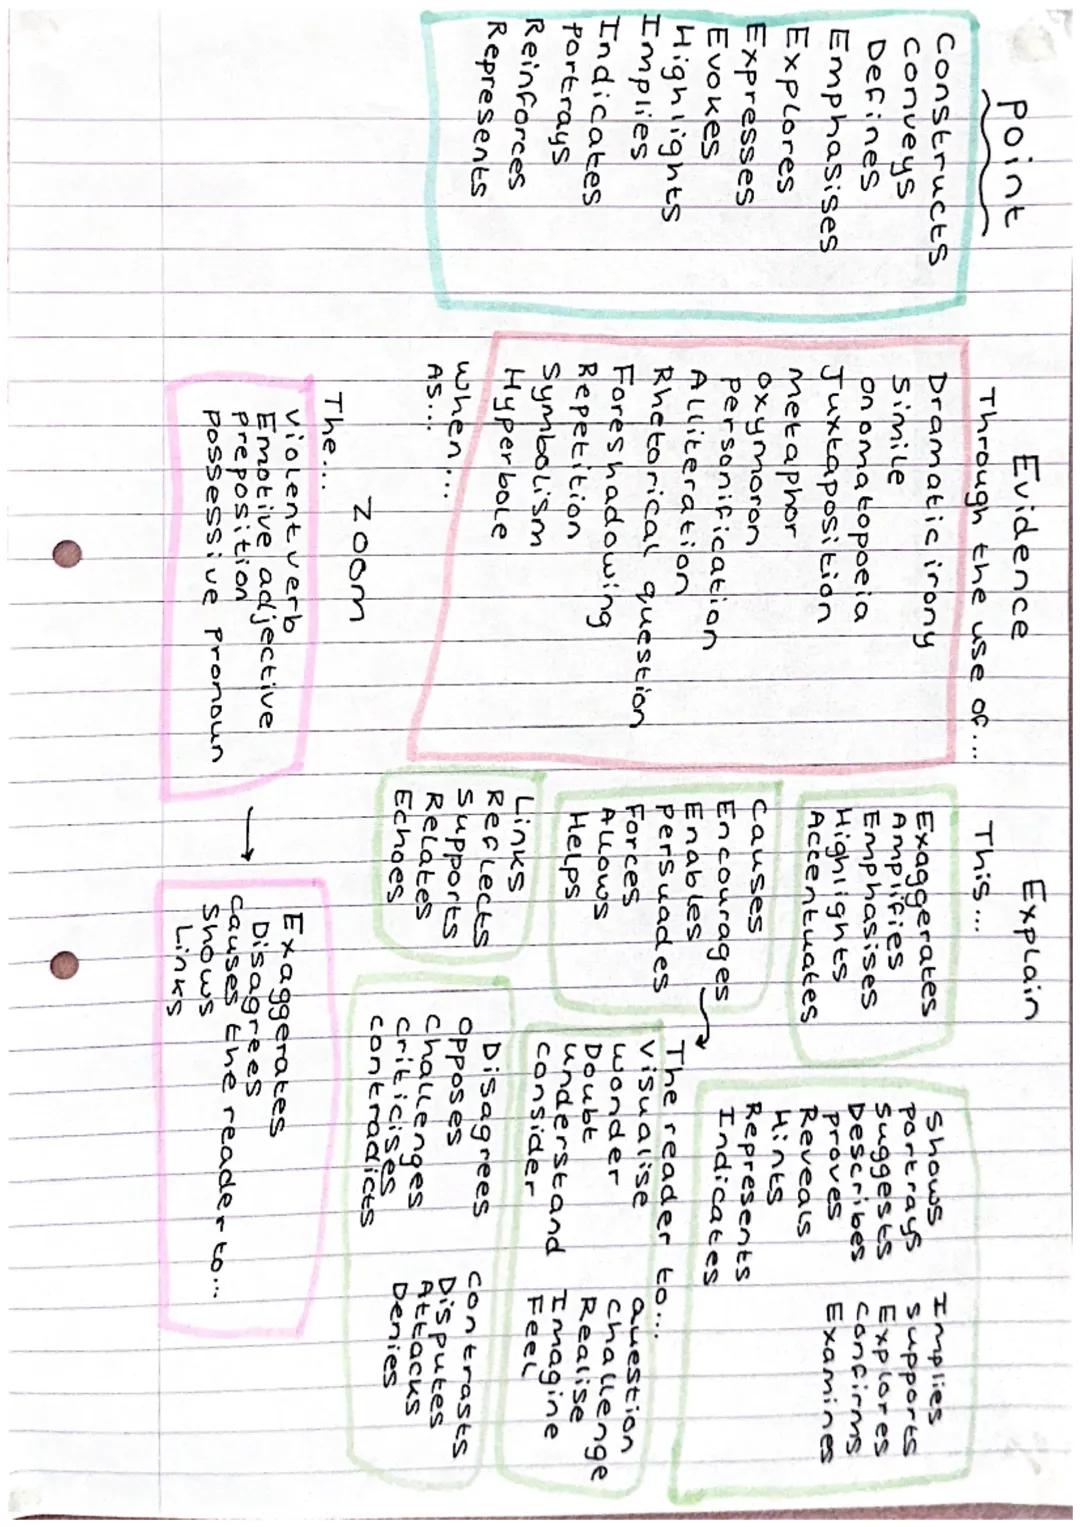 Point
Constructs
Conveys
Defines
Emphasises
Explores
Expresses
Evokes
Highlights
Implies
Indicates
Portrays
Reinforces
Represents
Evidence
Through the use of...
Dramatic irony
Simile
Onomatopoeia
Juxtaposition
Metaphor
Oxymoron
Personification
Alliteration
Rhetorical question
Foreshadowing
Repetition
Symbolism
Hyperbole
When...
As...
Zoom
The...
Violent verb
Emotive adjective
Preposition
Possessive pronoun
→
Exaggerates
Disagrees
Causes the reader to...
Shows
Links
Explain
This...
Exaggerates
Amplifies
Emphasises
Highlights
Accentuates
Shows
Portrays
Suggests
Describes
Proves
Reveals
Hints
Represents
Indicates
Implies
Supports
Explores
Confirms
Examines
Causes
Encourages
Enables
Persuades
Forces
Allows
Helps
→ The reader to...
Visualise
Wonder
Doubt
Understand
Consider
Question
Challenge
Realise
Imagine
Feel
Links
Reflects
Supports
Relates
Echoes
Disagrees
Opposes
Challenges
Criticises
Contradicts
Contrasts
Disputes
Attacks
Denies